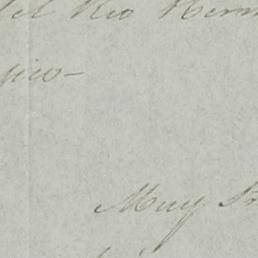 del Rio Herm
gico-
Muy Sr